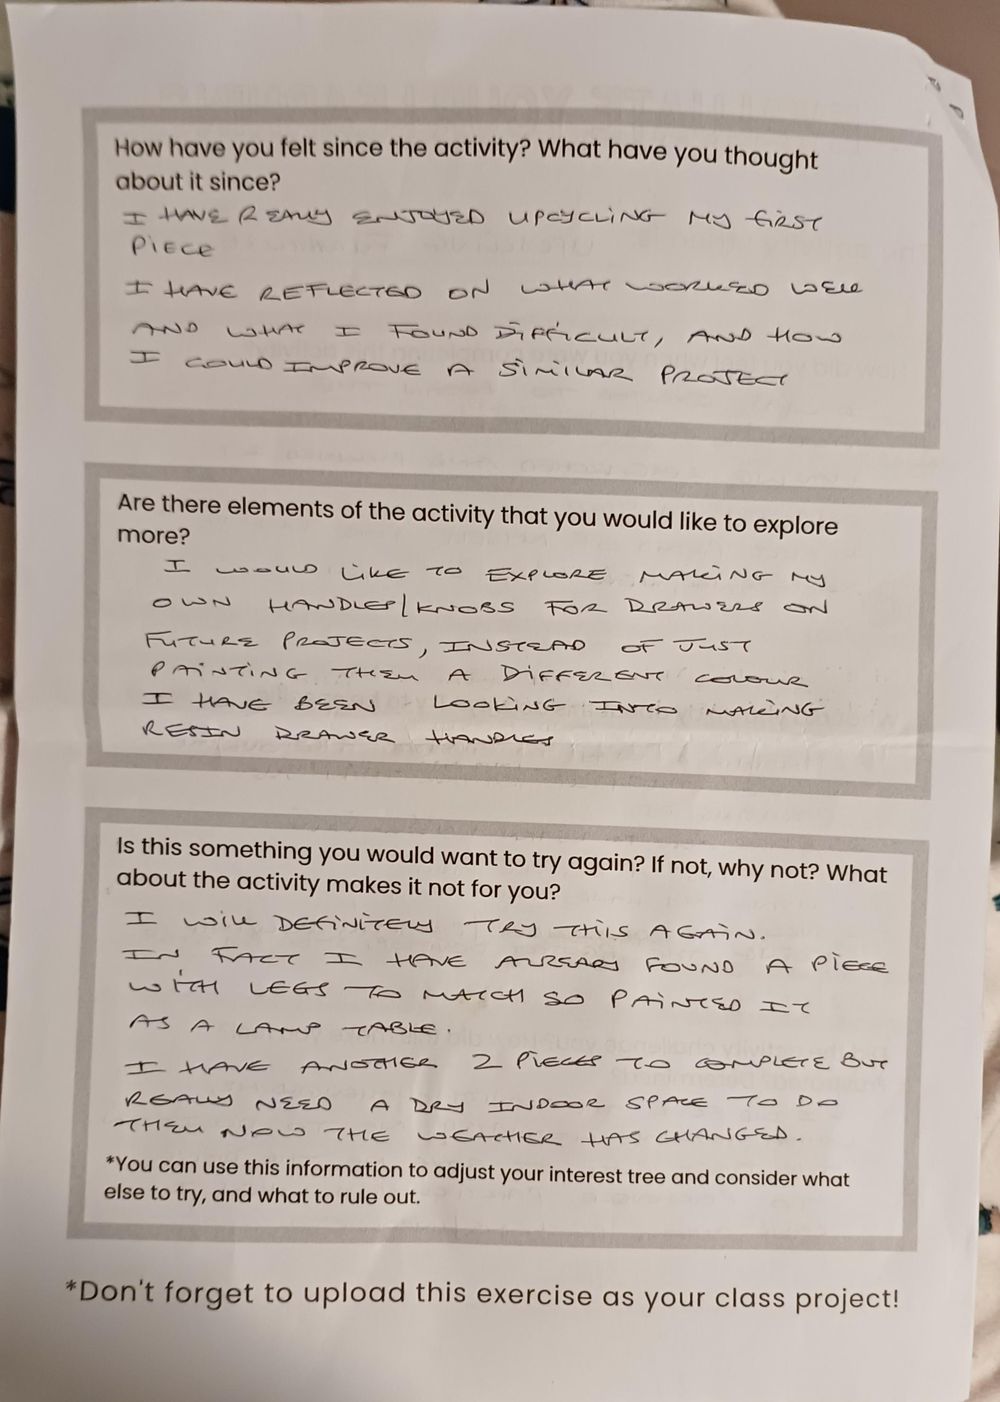 How have you felt since the activity? What have you thought
about it since?
I HAVE REALLY ENJOYED UPCYCLING MY FIRST
PIECE
I HAVE REFLECTED ON WHAT WORKED WELL
AND WHAT I FOUND DIFFICULT, AND HOW
I COULD IMPROVE A SIMILAR PROJECT
Are there elements of the activity that you would like to explore
more?
I WOULD LIKE TO EXPLORE MAKING MY
OWN HANDLES/KNOBS FOR DRAWERS ON
FUTURE PROJECTS, INSTEAD OF JUST
PAINTING THEM A DIFFERENT COLOUR
I HAVE BEEN LOOKING INTO MAKING
RESIN DRAWER HANDLES
Is this something you would want to try again? If not, why not? What
about the activity makes it not for you?
I WILL DEFINITELY TRY THIS AGAIN.
IN FACT I HAVE ALREADY FOUND A PIECE
WITH LEGS TO MATCH SO PAINTED IT
AS A LAMP TABLE.
I HAVE ANOTHER 2 PIECES TO COMPLETE BUT
REALLY NEED A DRY INDOOR SPACE TO DO
THEM NOW THE WEATHER HAS CHANGED.
*You can use this information to adjust your interest tree and consider what
else to try, and what to rule out.
*Don't forget to upload this exercise as your class project!